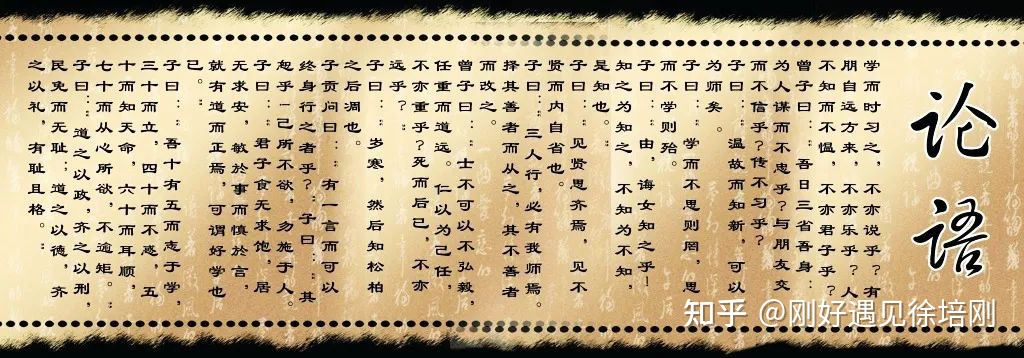 论语
学而时习之，不亦说乎？有
朋自远方来，不亦乐乎？人
不知而不愠，不亦君子乎？
曾子曰："吾日三省吾身：
为人谋而不忠乎？与朋友交
而不信乎？传不习乎？
子曰："温故而知新，可以
为师矣。"
子曰："学而不思则罔，思
而不学则殆。
子曰："由，诲女知之乎！
知之为知之，不知为不知，
是知也。"
子曰："见贤思齐焉，见不
贤而内自省也。
子曰："三人行，必有我师焉。
择其善者而从之，其不善者
而改之。
曾子曰："士不可以不弘毅，
任重而道远。仁以为己任，
不亦重乎？死而后已，不亦
远乎？"
子曰："岁寒，然后知松柏
之后凋也。
子贡问曰："有一言而可以
终身行之者乎？"子曰："其
恕乎！己所不欲，勿施于人。
子曰："君子食无求饱，居
无求安，敏於事而慎於言，
就有道而正焉，可谓好学也
已。"
子曰："吾十有五而志于学，
三十而立，四十而不惑，五
十而知天命，六十而耳顺，
七十而从心所欲，不逾矩。"
子曰："道之以政，齐之以刑，
民免而无耻；道之以德，齐
之以礼，有耻且格。"
知乎 @刚好遇见徐培刚